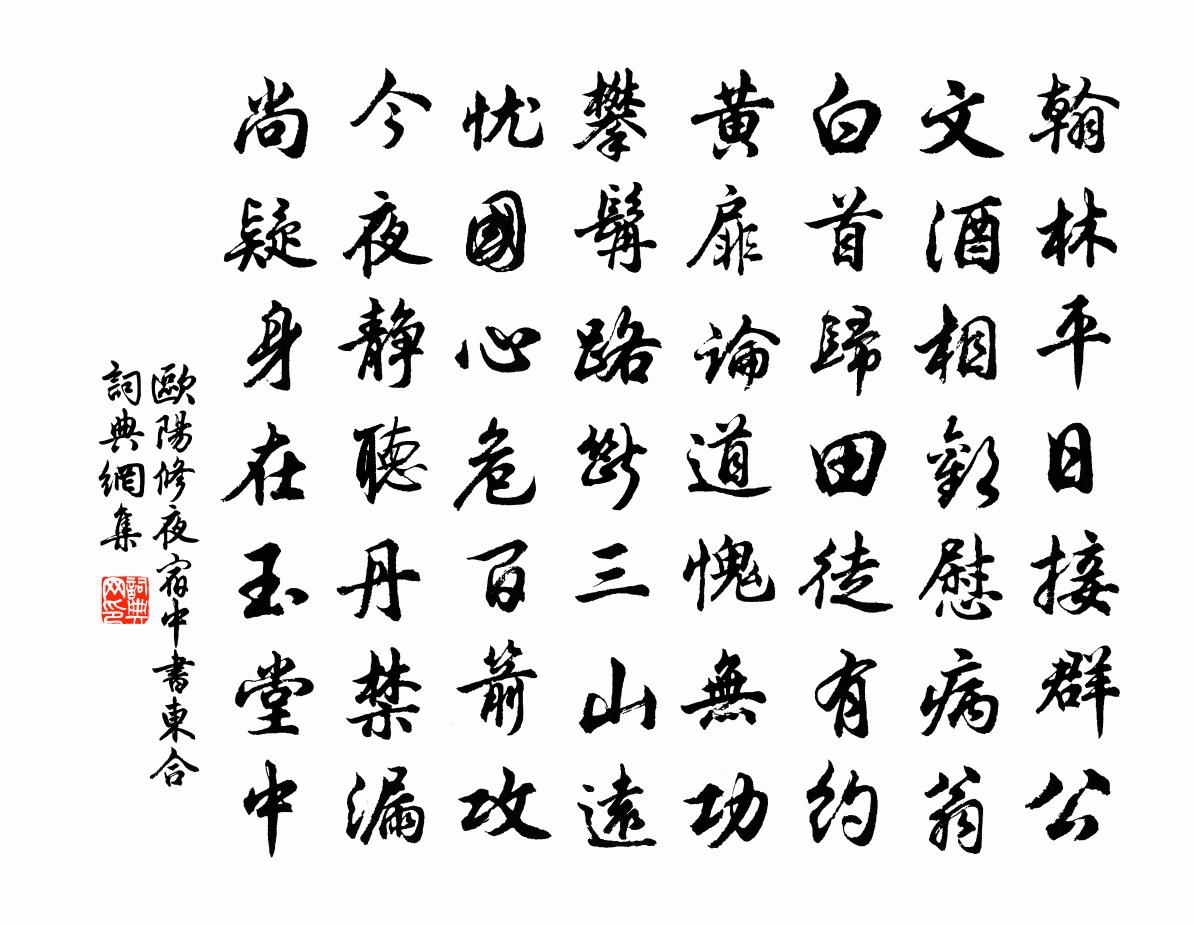 翰林平日接群公
文酒相歡慰病翁
白首歸田徒有約
黄扉論道愧無功
攀髯路斷三山遠
忧國心危百箭攻
今夜静聽丹禁漏
尚疑身在玉堂中
歐陽修夜宿中書東合
詞典網集
詞典网印